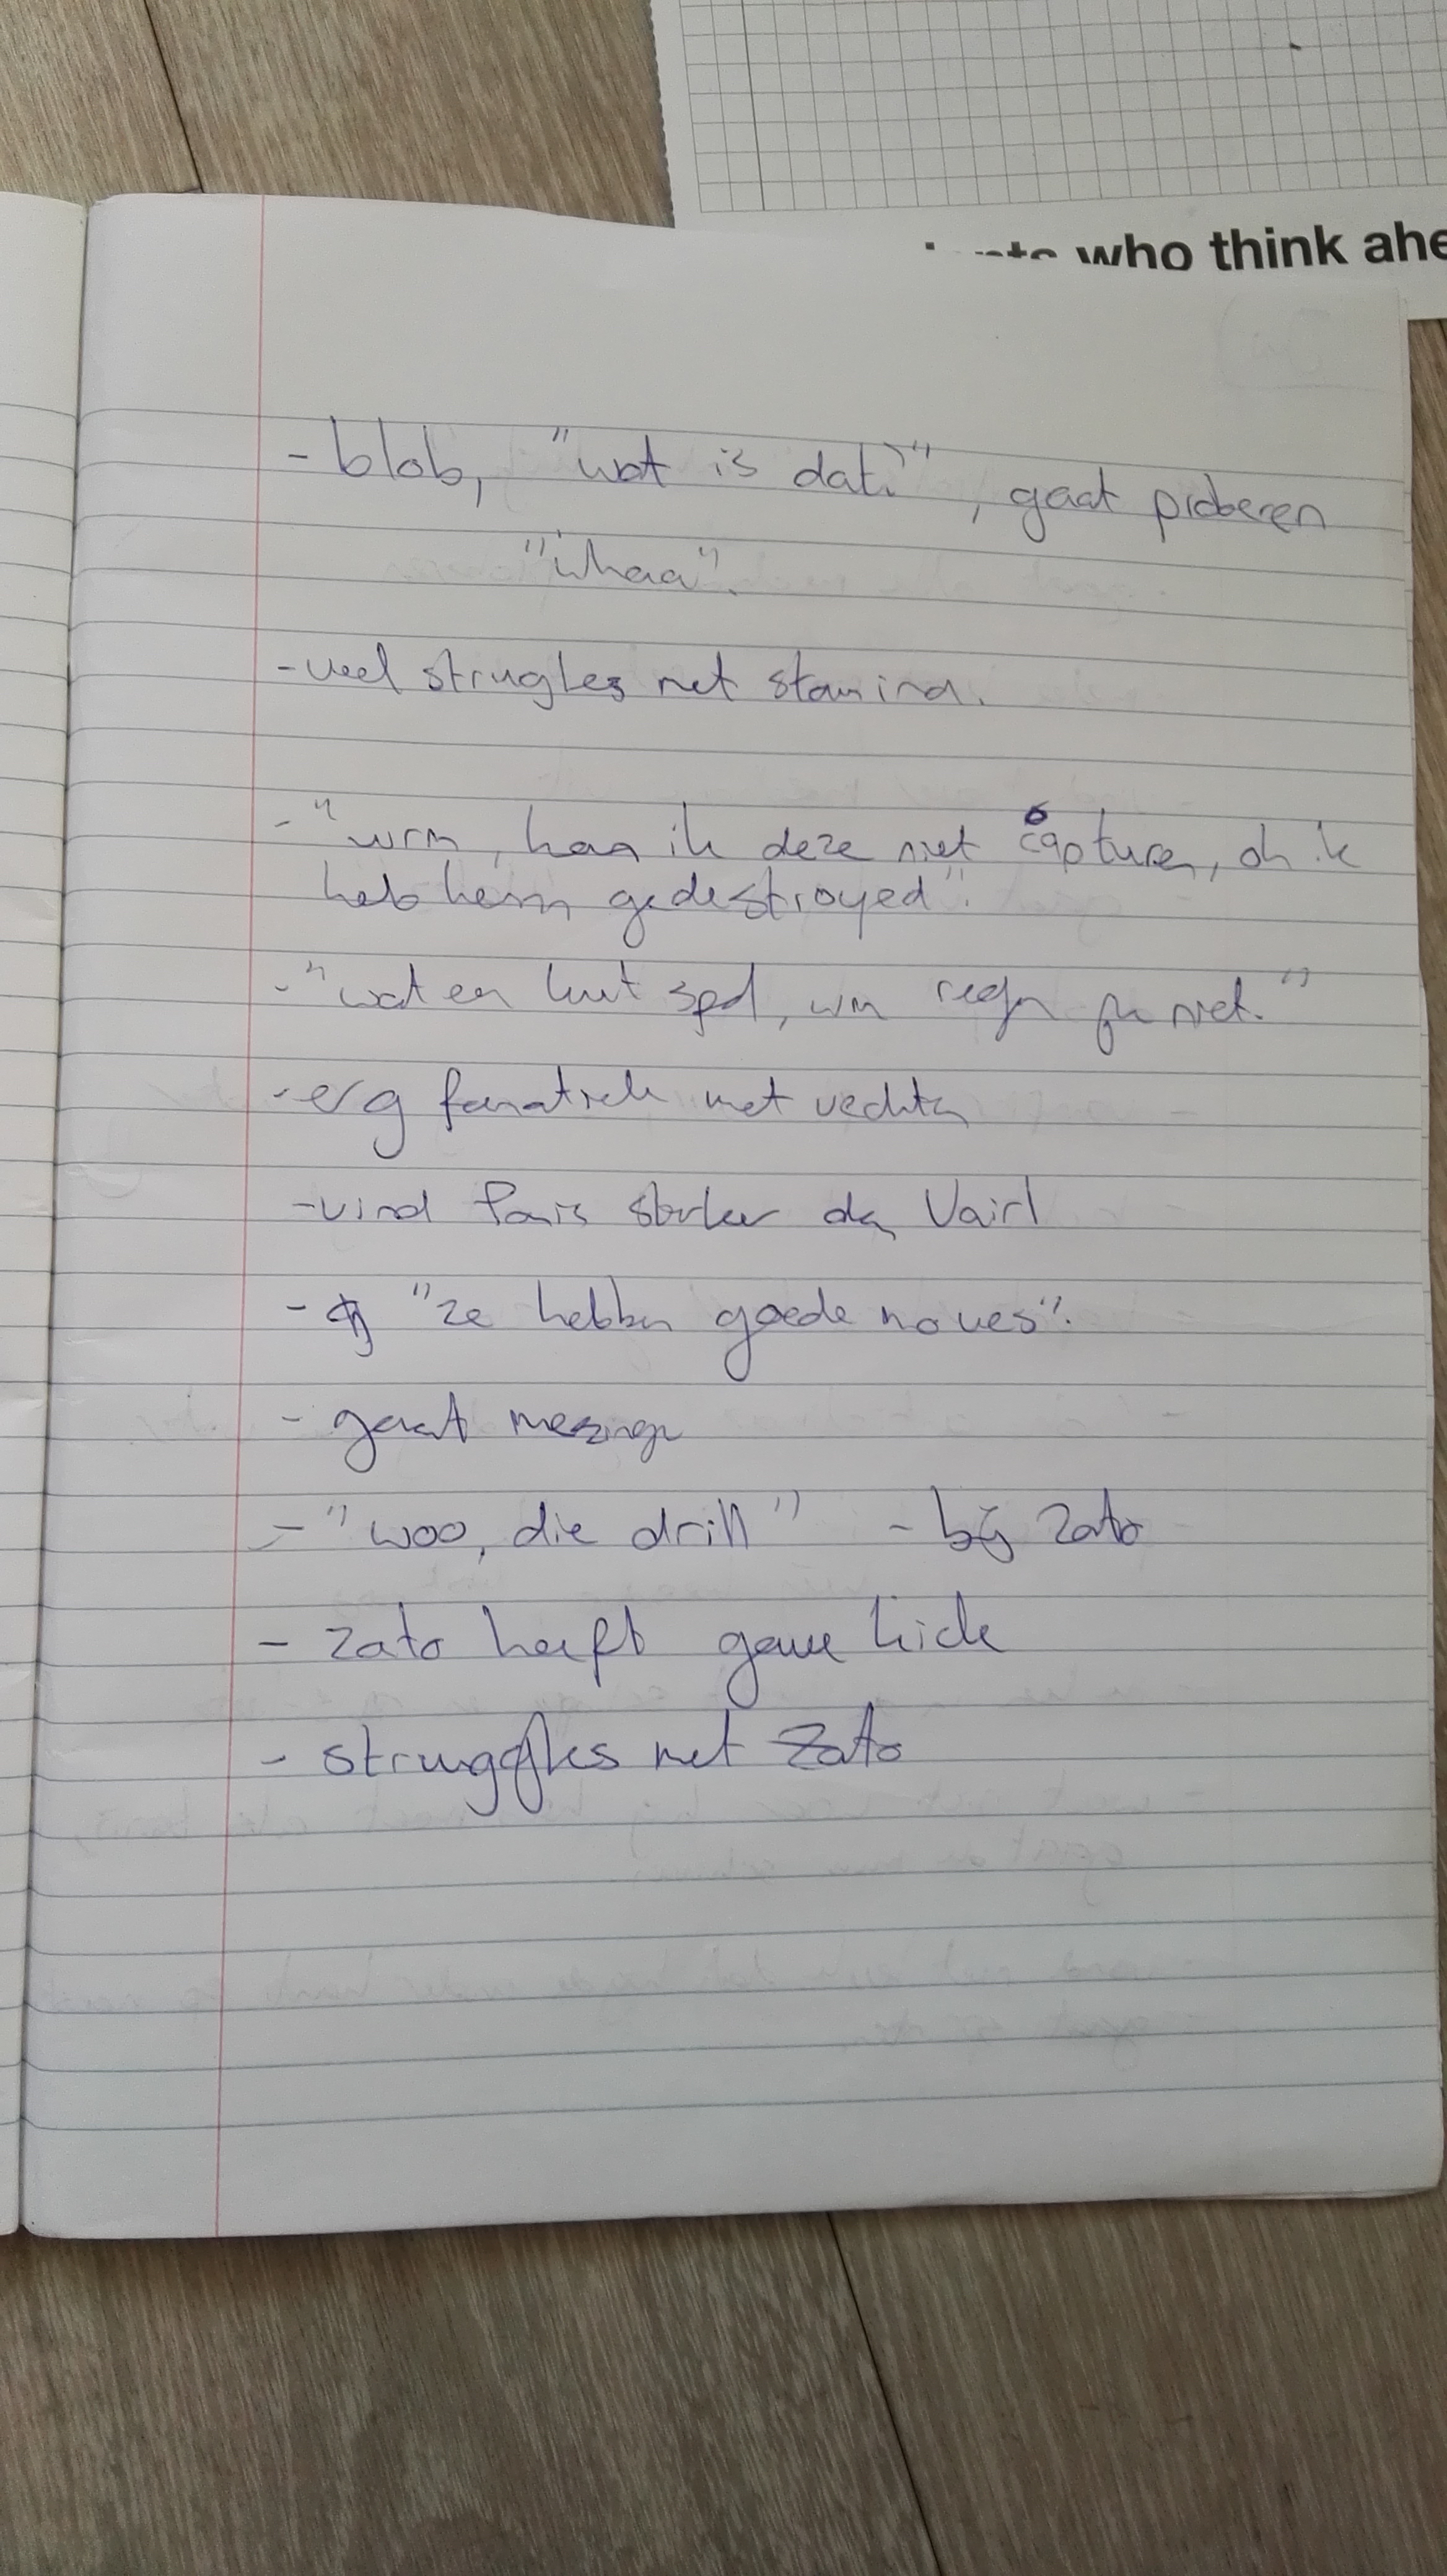 who think ahe
- blob, "wat is dat?", gaat proberen
"whaa".
- veel strugles met stamina.
- " kan ik deze niet capturen, oh ik
heb hem gedestroyed".
- "wat een kut spel, niet."
- erg fanatiek met vechten
- vind sterker dan
- "ze hebben goede moves".
- gaat
- "woo, die drill" - bij Zato
- Zato heeft gave kick
- struggles met Zato